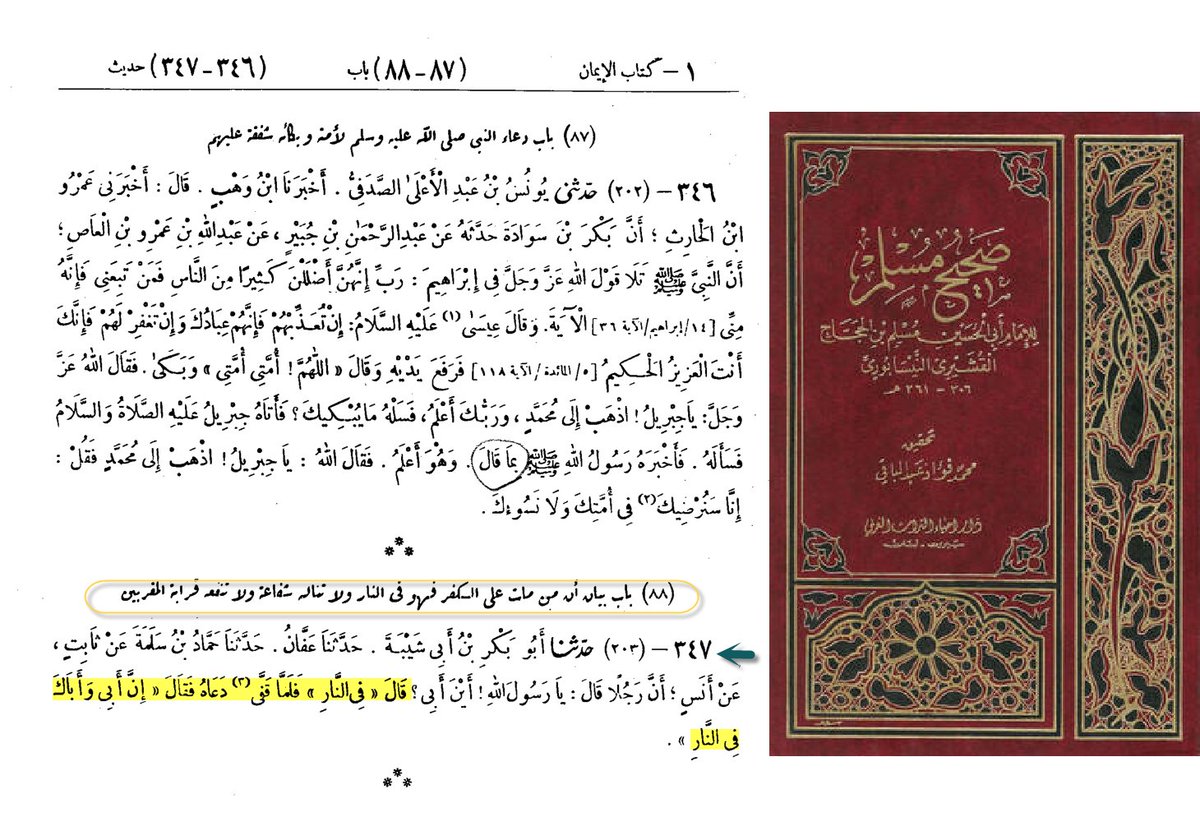 ١ – كتاب الإيمان (٨٧–٨٨) باب (٣٤٦–٣٤٧) حديث
(٨٧) باب دعاء النبي صلى الله عليه وسلم لأمته وبكائه شفقة عليهم
٣٤٦ – (٢٠٢) حدثنى يُونُسُ بْنُ عَبْدِ الْأَعْلَى الصَّدَفِيُّ . أَخْبَرَنَا ابْنُ وَهْبٍ . قَالَ : أَخْبَرَنِي عَمْرُو
ابْنُ الْحَارِثِ ؛ أَنَّ بَكْرَ بْنَ سَوَادَةَ حَدَّثَهُ عَنْ عَبْدِالرَّحْمٰنِ بْنِ جُبَيْرٍ ، عَنْ عَبْدِاللهِ بْنِ عَمْرِو بْنِ الْعَاصِ ؛
أَنَّ النَّبِيَّ ﷺ تَلَا قَوْلَ اللهِ عَزَّ وَجَلَّ فِي إِبْرَاهِيمَ : رَبِّ إِنَّهُنَّ أَضْلَلْنَ كَثِيرًا مِنَ النَّاسِ فَمَنْ تَبِعَنِي فَإِنَّهُ
مِنِّى [١٤/إبراهيم/الآية ٣٦] الْآيَةَ. وَقَالَ عِيسَى (١) عَلَيْهِ السَّلَامُ: إِنْ تُعَذِّبْهُمْ فَإِنَّهُمْ عِبَادُكَ وَإِنْ تَغْفِرْ لَهُمْ فَإِنَّكَ
أَنْتَ الْعَزِيزُ الْحَكِيمُ [٥/المائدة/الآية ١١٨] فَرَفَعَ يَدَيْهِ وَقَالَ « اللّٰهُمَّ ! أُمَّتِي أُمَّتِي » وَبَكَى. فَقَالَ اللهُ عَزَّ
وَجَلَّ: يَاجِبْرِيلُ ! اذْهَبْ إِلَى مُحَمَّدٍ ، وَرَبُّكَ أَعْلَمُ ، فَسَلْهُ مَايُبْكِيكَ ؟ فَأَتَاهُ جِبْرِيلُ عَلَيْهِ الصَّلَاةُ وَالسَّلَامُ
فَسَأَلَهُ . فَأَخْبَرَهُ رَسُولُ اللهِ ﷺ بِمَا قَالَ . وَهُوَ أَعْلَمُ . فَقَالَ اللهُ : يَا جِبْرِيلُ ! اذْهَبْ إِلَى مُحَمَّدٍ فَقُلْ :
إِنَّا سَنُرْضِيكَ (٢) فِي أُمَّتِكَ وَلَا نَسُوءُكَ .
(٨٨) باب بيان أن من مات على الكفر فهو فى النار ولا تناله شفاعة ولا تنفعه قرابة المقربين
٣٤٧ – (٢٠٣) حدثنا أَبُو بَكْرِ بْنُ أَبِي شَيْبَةَ . حَدَّثَنَا عَفَّانُ . حَدَّثَنَا حَمَّادُ بْنُ سَلَمَةَ عَنْ ثَابِتٍ ،
عَنْ أَنَسٍ ؛ أَنَّ رَجُلًا قَالَ : يَا رَسُولَ اللهِ ! أَيْنَ أَبِي ؟ قَالَ « فِي النَّارِ » فَلَمَّا قَفَّى (٣) دَعَاهُ فَقَالَ « إِنَّ أَبِي وَأَبَاكَ
فِي النَّارِ » .
صَحِيحُ مُسْلِم
للإمام أبي الحسين مسلم بن الحجاج
القشيري النيسابوري
٢٠٦ – ٢٦١ هـ
تحقيق
محمد فؤاد عبد الباقي
دار احياء التراث العربي
بيروت - لبنان